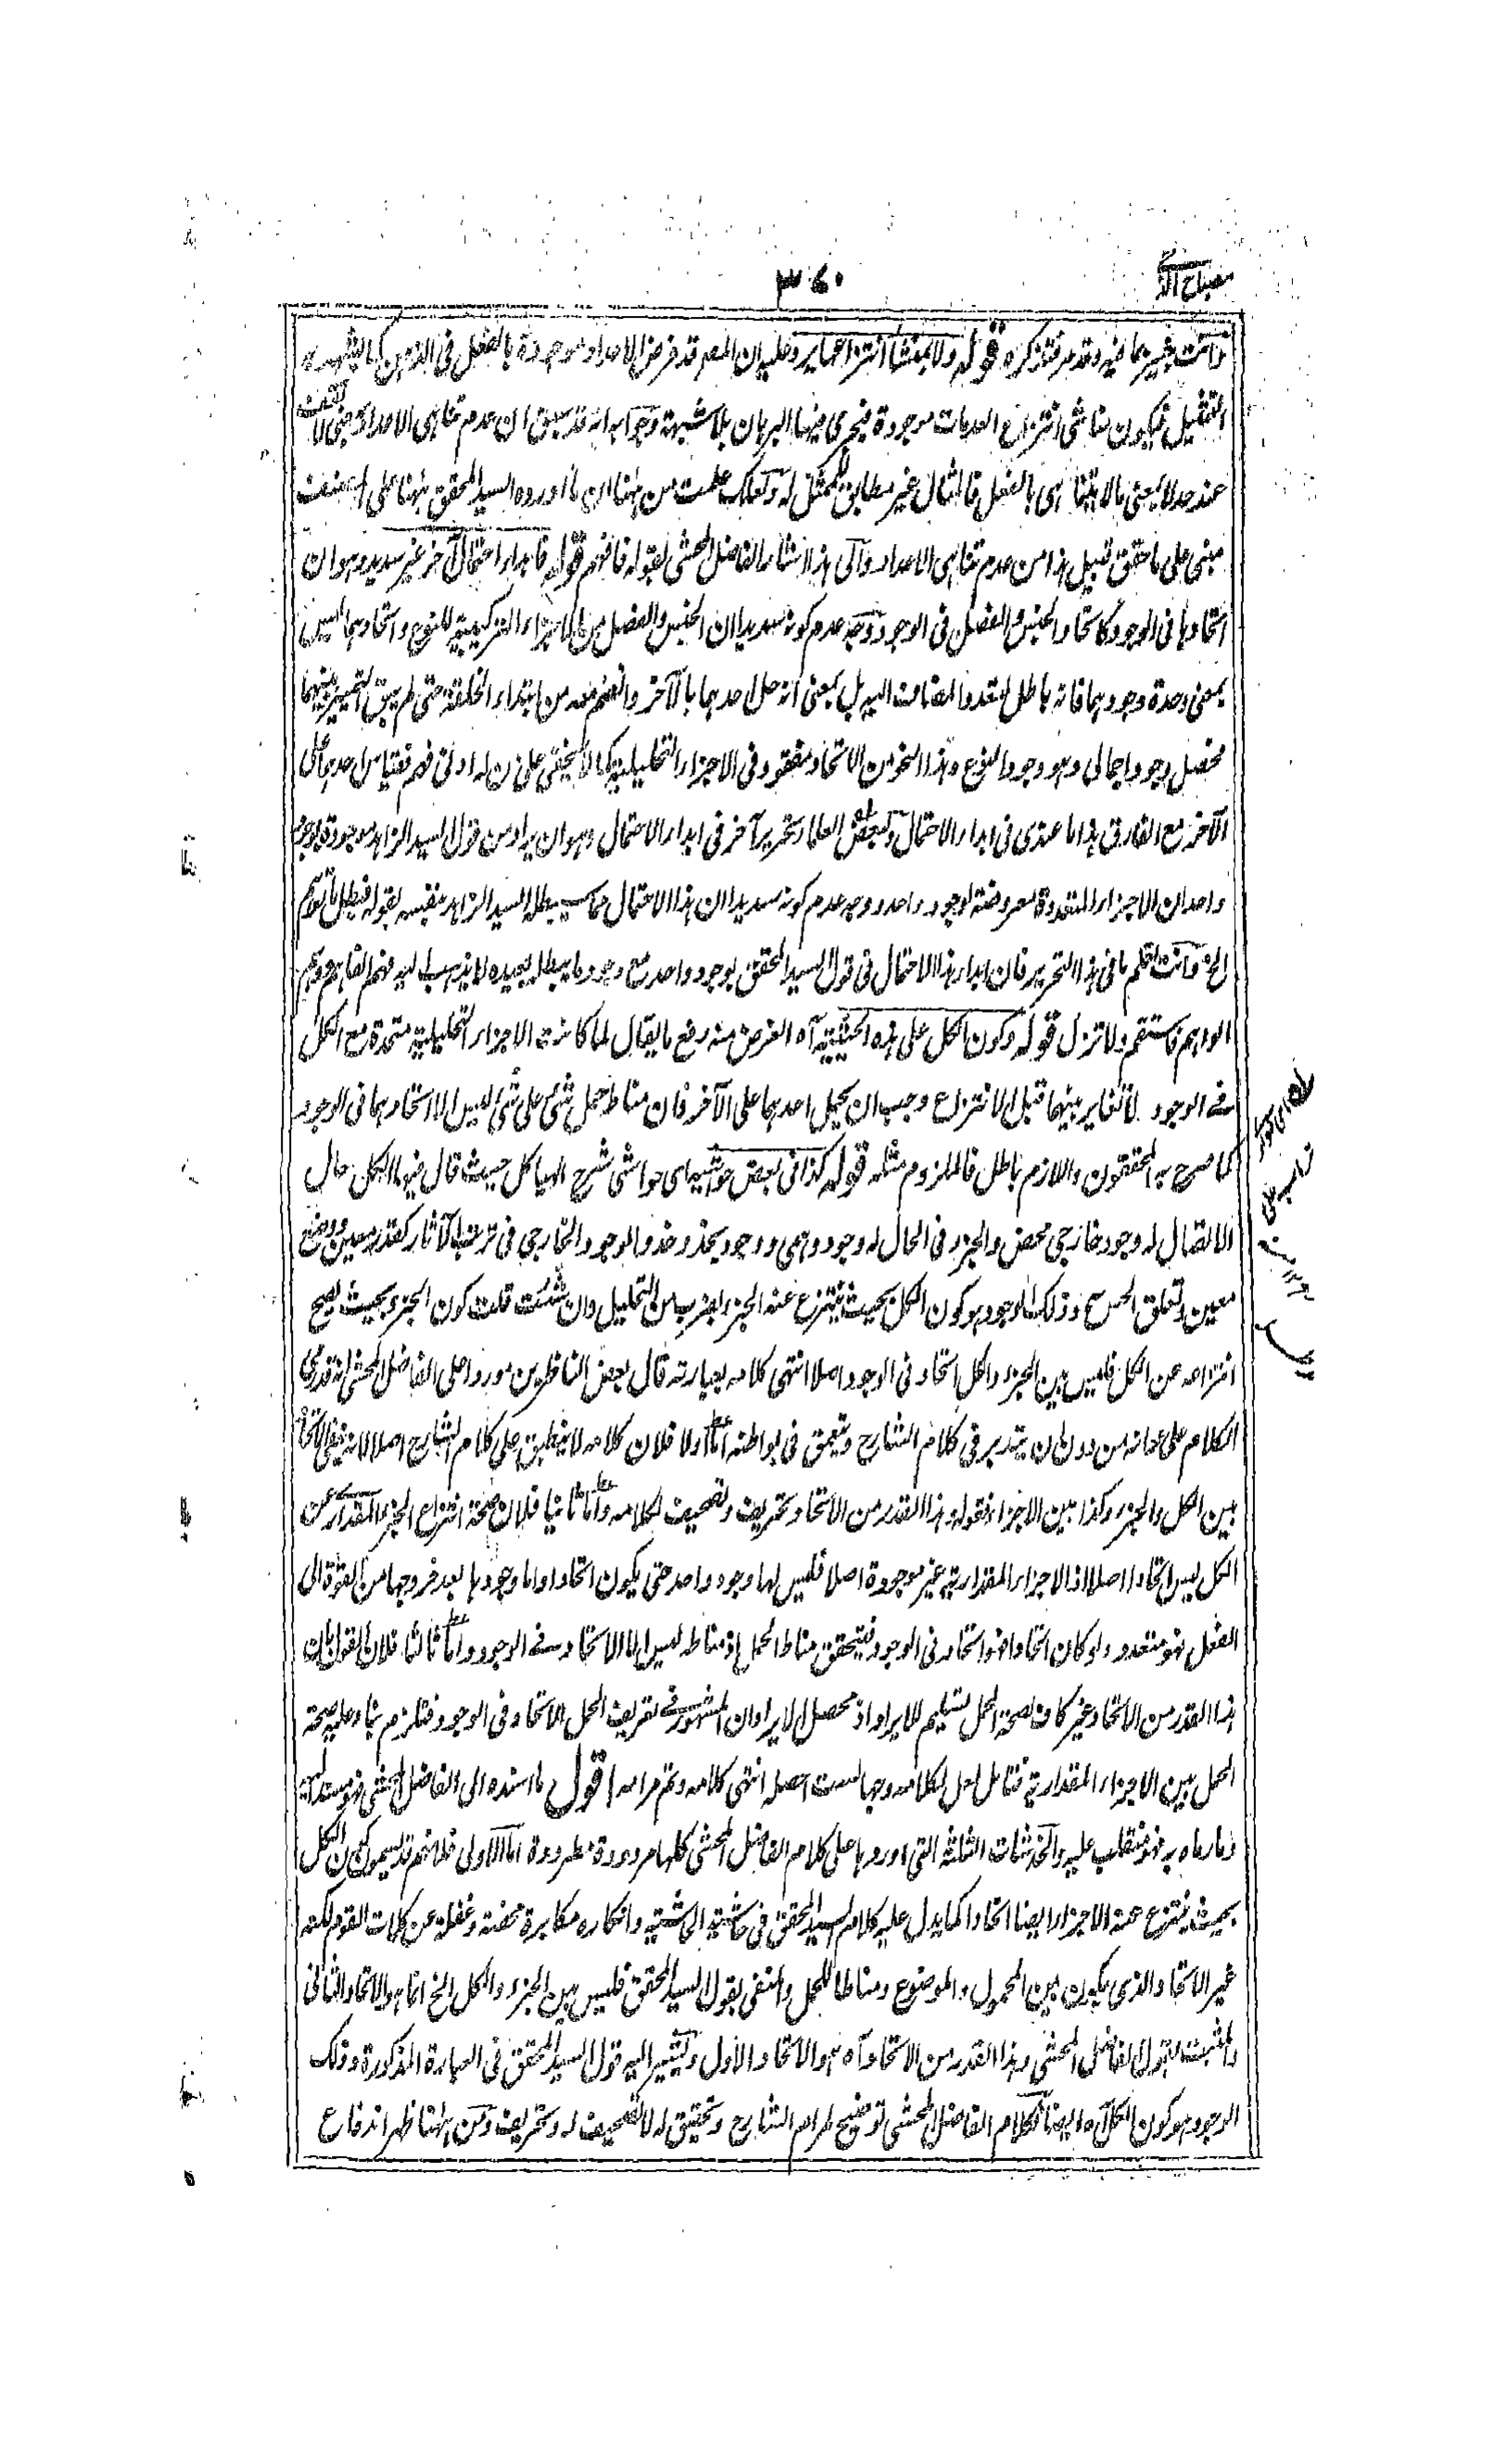 مصباح الدجى
٣٤٠
وانت خبير بما فيه وقد مر فتذكره قوله ولا بمنشأ انتزاعها يرد عليه ان المص قد فرض الاعداد موجودة بالفعل فى الذهن كما يشهد به
التمثيل فيكون مناشى انتزاع العدمات موجودة فيجرى فيها البرهان بلا شبهة وجوابه انه قد سبق ان عدم تناهى الاعداد بمعنى لا تقف
عند حد لا بمعنى ما لا يتناهى بالفعل فالمثال غير مطابق للممثل له ولعلك علمت من ههنا ان ما اورده السيد المحقق ههنا على المصنف
مبنى على ما حقق قبيل هذا من عدم تناهى الاعداد والى هذا اشار الفاضل المحشى بقوله فافهم قوله فابداء احتمال آخر غير سديد وهو ان
اتحادها فى الوجود كاتحاد الجنس والفصل فى الوجود ووجه عدم كونه سديدا ان الجنس والفصل من الاجزاء التركيبية للنوع واتحادهما ليس
بمعنى وحدة وجودهما فانه باطل لتعدد المضاف اليه بل بمعنى انه حل احدهما بالآخر وانضم معه من ابتداء الخلقة حتى طريق التمييز بينهما
فحصل وجود اجمالى وهو وجود النوع وهذا النحو من الاتحاد مفقود فى الاجزاء التحليلية كما لا يخفى على من له ادنى فهم فقياس احدهما على
الآخر مع الفارق هذا ما عندى فى ابداء الاحتمال ولبعض العلماء تحرير آخر فى ابداء الاحتمال وهو ان يراد من قول السيد الزاهد موجودة بوجود
واحد ان الاجزاء المتعددة معروضة لوجود واحد ووجه عدم كونه سديدا ان هذا الاحتمال مما سيبطله السيد الزاهد بنفسه بقوله فبطل ما توهم
الخ وانت تعلم ما فى هذا التحرير فان ابداء هذا الاحتمال فى قول السيد المحقق بوجود واحد مع وجود ما يبطله بعيده لا يذهب اليه فهم الفاهم ووهم
الواهم فاستقم ولا تزل قوله وكون الكل على هذه الحيثية آه الغرض منه رفع ما يقال لما كانت الاجزاء التحليلية متحدة مع الكل
فى الوجود لا تغاير بينهما قبل الانتزاع وجب ان يحمل احدهما على الآخر فان مناط حمل شئ على شئ ليس الا اتحادهما فى الوجود
كما صرح به المحققون واللازم باطل فالملزوم مثله قوله كذا فى بعض حواشيه اى حواشى شرح الهياكل حيث قال فيها الكل حال
الاتصال له وجود خارجى محض والجزء فى الحال له وجود وهمى ووجود يحذو حذو الوجود الخارجى فى ترتب الآثار كقدر معين ووضع
معين وتعلق الحس وذلك الوجود هو كون الكل بحيث ينتزع عنه الجزء بضرب من التحليل وان شئت قلت كون الجزء بحيث يصح
انتزاعه عن الكل فليس بين الجزء والكل اتحاد فى الوجود اصلا انتهى كلامه بعبارته قال بعض الناظرين موردا على الفاضل المحشى انه قد رمى
الكلام على عواهنه من دون ان يتدبر فى كلام الشارح ويتعمق فى بواطنه اما اولا فلان كلامه لا ينطبق على كلام الشارح اصلا لانه ينفى الاتحاد
بين الكل والجزء وكذا بين الاجزاء فقوله وهذا القدر من الاتحاد تحريف وتصحيف لكلامه واما ثانيا فلان صحة انتزاع الجزء المقدارى عن
الكل ليس اتحادا اصلا اذ الاجزاء المقدارية غير موجودة اصلا فليس لها وجود واحد حتى يكون اتحادا واما وجودها بعد خروجها من القوة الى
الفعل فهو متعدد ولو كان اتحادا فهو اتحاد فى الوجود فيتحقق مناط الحمل اذ مناطه ليس الا الاتحاد فى الوجود واما ثالثا فلان القول بان
هذا القدر من الاتحاد غير كاف لصحة الحمل تسليم للايراد اذ محصل الايراد ان المشهور فى تعريف الحمل الاتحاد فى الوجود فتلزم بناء عليه صحة
الحمل بين الاجزاء المقدارية فتامل لعل لكلامه وجها لست احصله انتهى كلامه وتم مرامه اقول ما اسنده الى الفاضل المحشى فهو مسند اليه
وما رماه به فهو منقلب عليه والخدشات الثلثة التى اوردها على كلام الفاضل المحشى كلها مردودة مطرودة اما الاولى فلانهم قد يسمون كون الكل
بحيث ينتزع عنه الاجزاء ايضا اتحادا كما يدل عليه كلام السيد المحقق فى حاشية الحاشية وانكاره مكابرة محضة وغفلة عن كلمات القوم لكنه
غير الاتحاد الذى يكون بين المحمول والموضوع ومناطا للحمل والمنفى بقول السيد المحقق فليس بين الجزء والكل الخ انما هو الاتحاد الثانى
والمثبت بقول الفاضل المحشى وهذا القدر من الاتحاد آه هو الاتحاد الاول ويشير اليه قول السيد المحقق فى العبارة المذكورة وذلك
الوجود هو كون الكل آه ايضا فكلام الفاضل المحشى توضيح لمرام الشارح وتحقيق له لا تصحيف له وتحريف ومن ههنا ظهر اندفاع